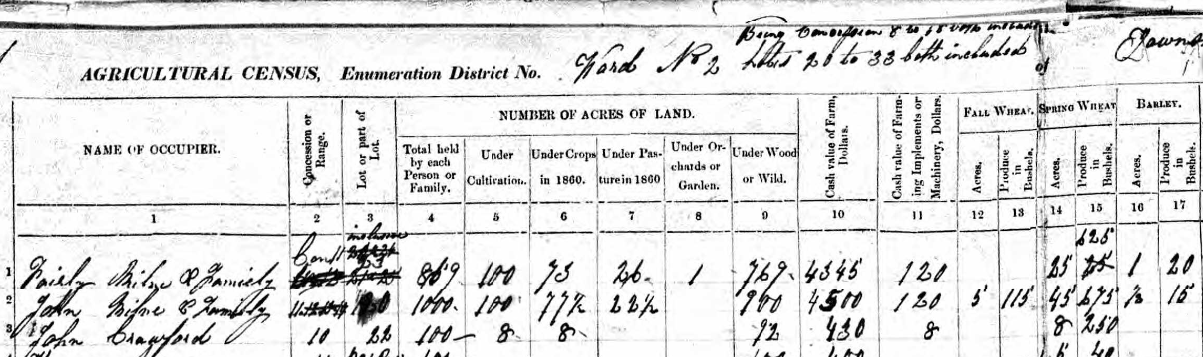 Being Concession 8 to 18 both included
AGRICULTURAL CENSUS, Enumeration District No. Ward No 2 Lots 20 to 33 both included of
NAME OF OCCUPIER.
Concession or Range.
Lot or part of Lot.
NUMBER OF ACRES OF LAND.
Total held by each Person or Family.
Under Cultivation.
Under Crops in 1860.
Under Pasture in 1860
Under Orchards or Garden.
Under Wood or Wild.
Cash value of Farm, Dollars.
Cash value of Farming Implements or Machinery, Dollars.
FALL WHEAT.
Acres.
Produce in Bushels.
SPRING WHEAT
Acres.
Produce in Bushels.
BARLEY.
Acres.
Produce in Bushels.
1 2 3 4 5 6 7 8 9 10 11 12 13 14 15 16 17
625
1 Milne & Family 869 100 73 26 1 769 4345 120 25 1 20
2 John Milne & Family 1000 100 77½ 22½ 900 4500 120 5 115 45 675 ½ 15
3 John Crawford 10 22 100 8 8 92 430 8 8 250